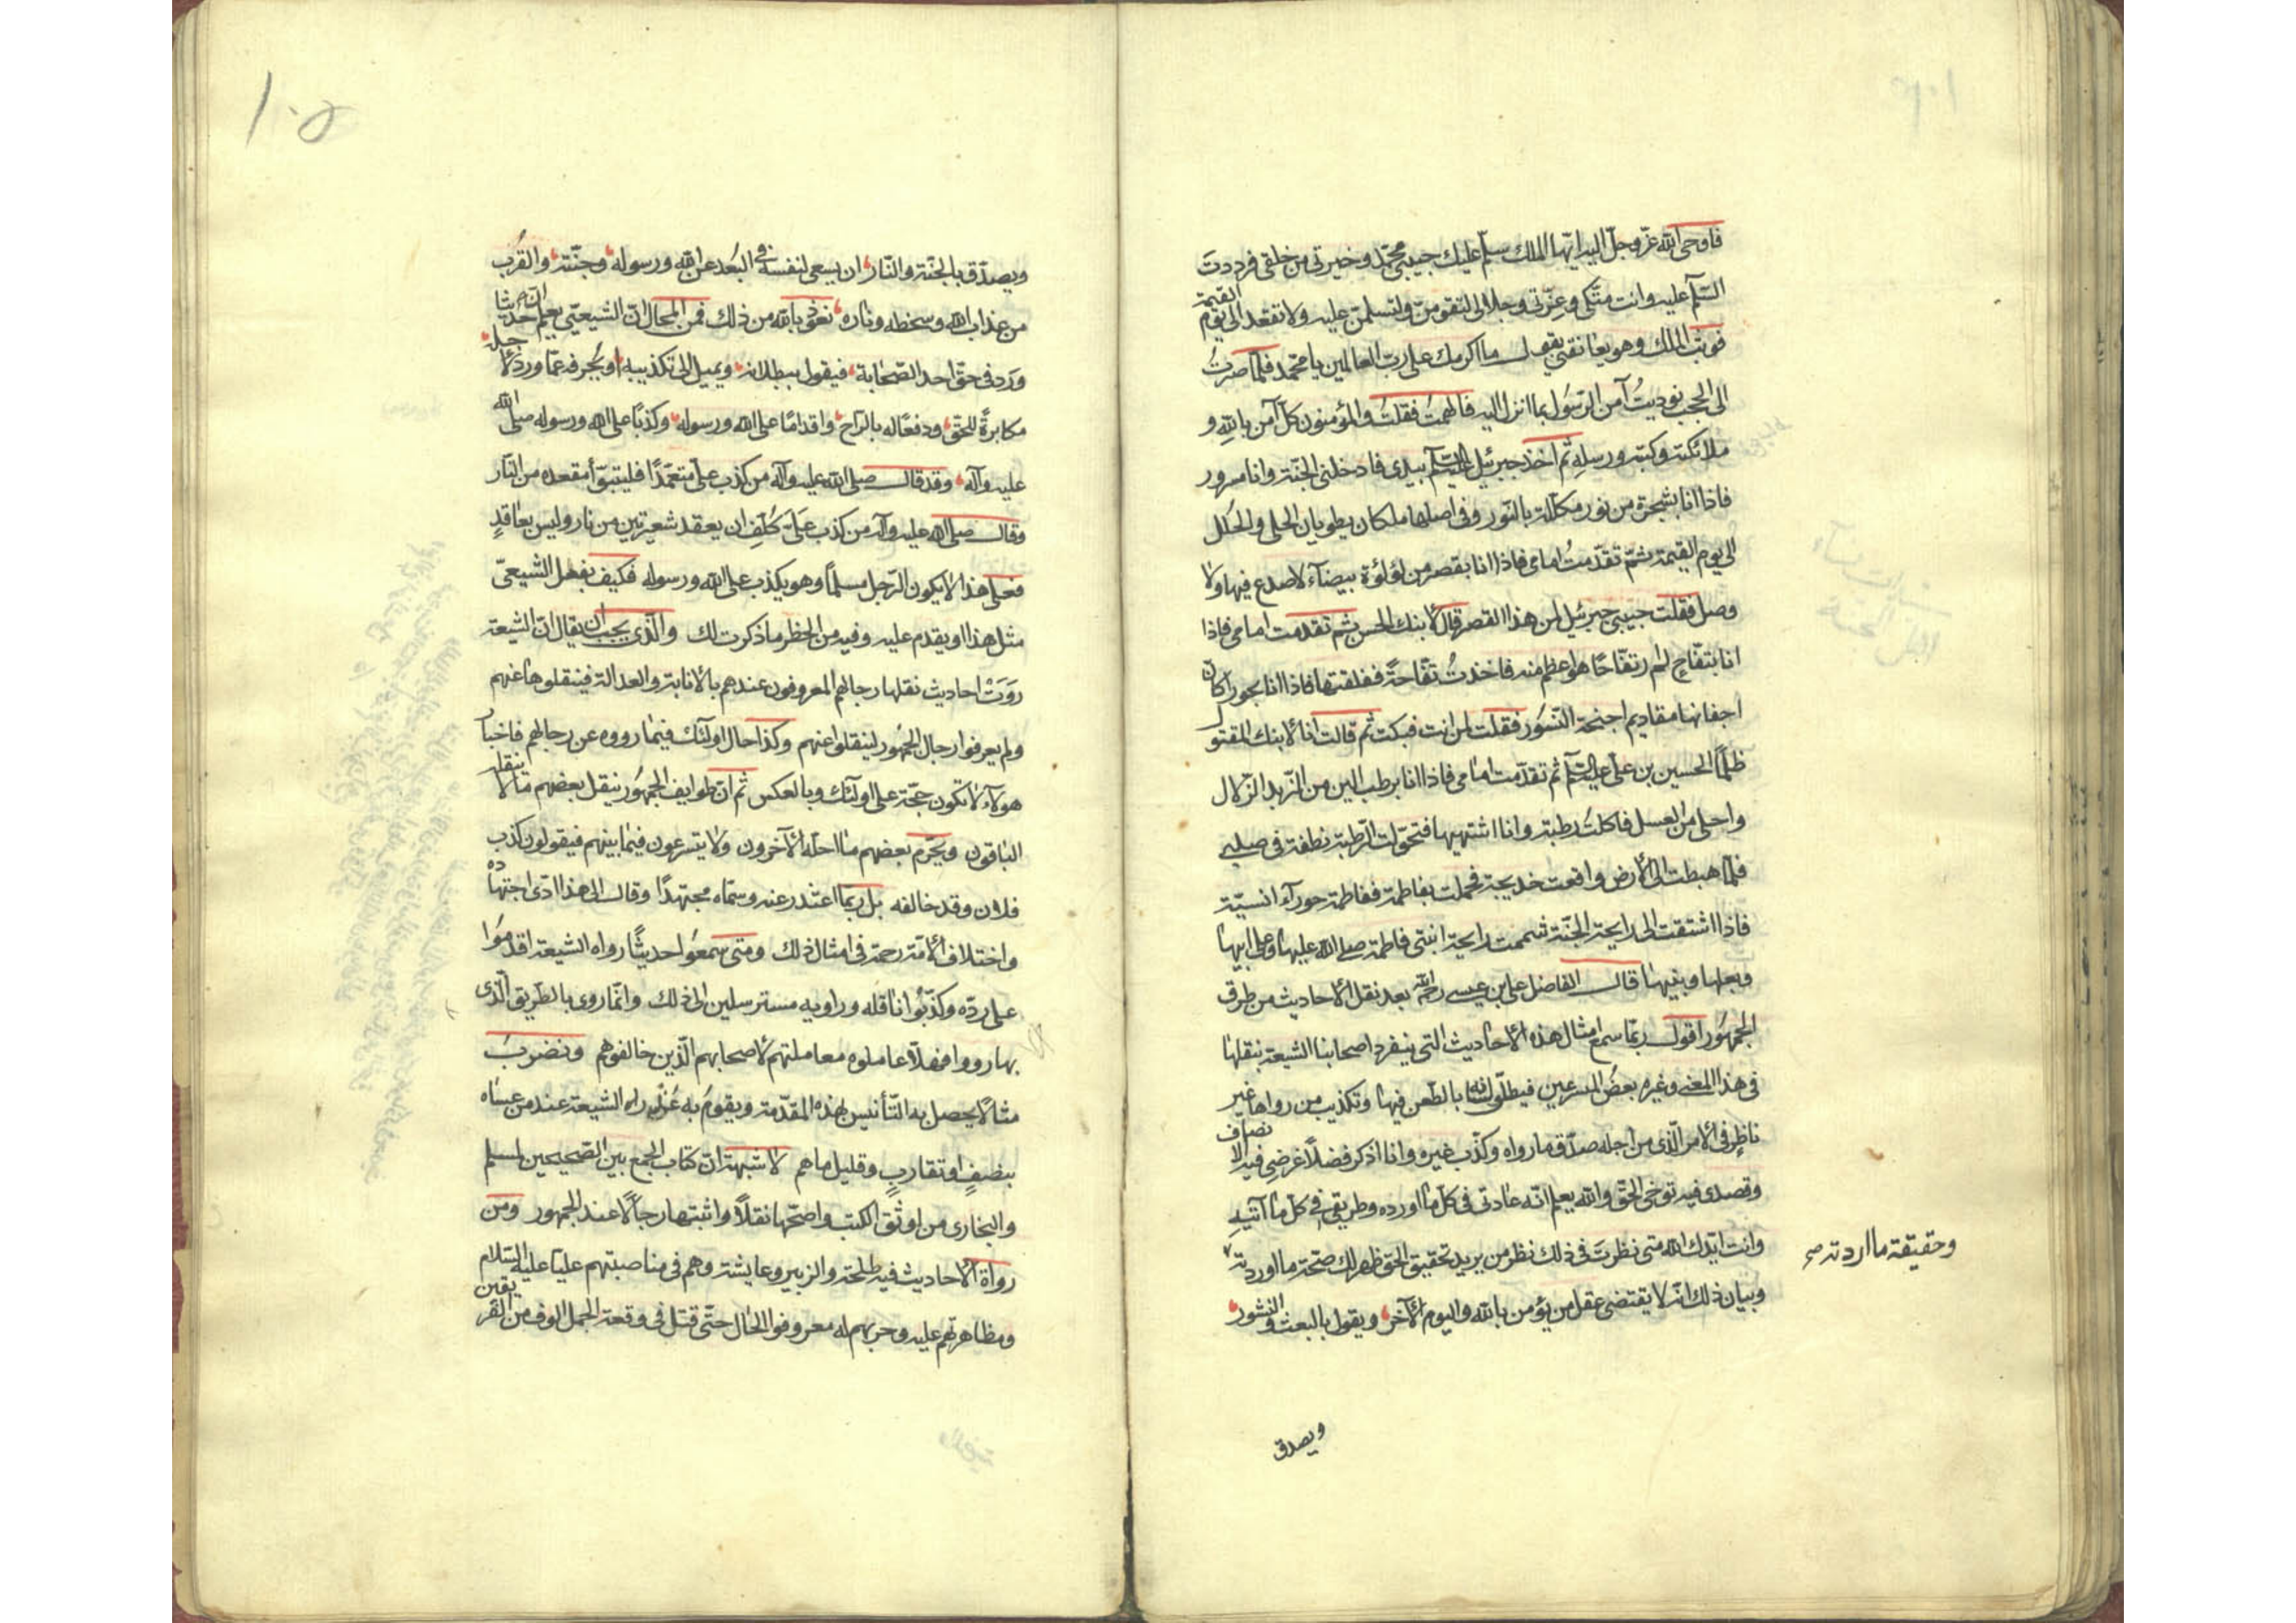 فاوحى الله عزّ وجلّ اليه ايّها الملك سلّم عليك حبيبي محمّد وخيرتي من خلقي فرددتَ
السّلم عليه وانت متّكى وعزّتي وجلالى لتقومنّ ولتسلمنّ عليه ولا تقعد الى يوم القيمة
فوثب الملك وهو يعانقني يقول ما اكرمك على ربّ العالمين يا محمّد فلمّا صرتُ
الى الحجب نوديتُ آمن الرّسول بما انزل اليه فالهمتُ فقلتُ والمؤمنون كلّ آمن بالله و
ملائكته وكتبه ورسله ثم اخذ جبرئيل عليه السّلم بيدى فادخلنى الجنّة وانا مسرور
فاذا انا بشجرة من نور مكلّلة بالنّور وفى اصلها ملكان يطويان الحلى والحلل
الى يوم القيمة ثمّ تقدّمتُ امامى فاذا انا بقصر من لؤلؤة بيضآء لا صدع فيها ولا
وصل فقلت حبيبى جبرئيل لمن هذا القصر قال لابنك الحسن ثم تقدمت امامى فاذا
انا بتفّاح لم ار تفّاحًا هو اعظم منه فاخذتُ تفّاحةً ففلقتها فاذا انا بحورا كان
اجفانها مقاديم اجنحة النّسور فقلت لمن انت فبكت ثم قالت انا لابنك المقتول
ظلمًا الحسين بن علىّ عليه السّلم ثم تقدّمت امامى فاذا انا برطب الين من الزّبد الزّلال
واحلى من العسل فاكلتُ رطبة وانا اشتهيها فتحوّلت الرّطبة نطفة فى صلبى
فلمّا هبطت الى الأرض واقعت خديجة فحملت بفاطمة ففاطمة حورآء انسيّة
فاذا اشتقت الى رايحة الجنّة شممت رايحة ابنتى فاطمة صلى الله عليها وعلى ابيها
وبعلها وبنيها قال الفاضل على بن عيسى رحمه الله بعد نقل الأحاديث من طرق
الجمهور اقول ربّما سمع امثال هذه الأحاديث التى ينفرد اصحابنا الشيعة بنقلها
فى هذا المعنى وغيره بعضُ المسرعين فيطلق لسانه بالطّعن فيها وتكذيب من رواها غير
ناظر فى الأمر الّذى من اجله صدّق ما رواه وكذّب غيره وانا اذكر فصلاً غرضى فيه الانصاف
وقصدى فيه توخى الحقّ والله يعلم انّه عادتى فى كلّ ما اورده وطريقى فى كلّ ما آتيه
وانت ايّدك الله متى نظرتَ فى ذلك نظر من يريد تحقيق الحق ظهر لك صحّة ما اوردته
وحقيقة ما اردته صح
وبيان ذلك انّه لا يقتضى عقل من يؤمن بالله واليوم الآخر ويقول بالبعث والنشور
ويصدق
ويصدّق بالجنّة والنّار ان يسعى لنفسه فى البُعد عن الله ورسوله وجنّته والقُرب
من عذاب الله وسخطه وناره نعوذ بالله من ذلك فمن المحال انّ الشيعىّ يعلم ان حديثا
ورد فى حقّ احد الصّحابة فيقول ببطلانه ويميل الى تكذيبه او يُحرفه عمّا ورد لأجله
مكابرةً للحقّ ودفعًا له بالرّاح واقدامًا على الله ورسوله وكذبًا على الله ورسوله صلى الله
عليه وآله وقد قال صلى الله عليه وآله من كذب علىّ متعمّدًا فليتبوّأ مقعده من النّار
وقال صلى الله عليه وآله من كذب عَلَىّ كُلّف ان يعقد شعيرتين من نار وليس بعاقدٍ
فعلى هذا لا يكون الرّجل مسلمًا وهو يكذب على الله ورسوله فكيف يفعل الشيعىّ
مثل هذا او يقدم عليه وفيه من الحظر ما ذكرت لك والّذى يجب ان يقال انّ الشيعة
رَوَتْ احاديث نقلها رجالهم المعروفون عندهم بالأنابة والعدالة فينقلوها عنهم
ولم يعرفوا رجال الجمهور لينقلوا عنهم وكذا حال اولئك فيما رووه عن رجالهم فاخبار
هولآء لا تكون حجّة على اولئك وبالعكس ثم انّ طوايف الجمهور ينقل بعضهم ما لا ينقله
الباقون ويحّرم بعضهم ما احلّه الآخرون ولا يتسرعون فيما بينهم فيقولون كذب
فلان وقد خالفه بل ربّما اعتذر عنه وسمّاه مجتهدًا وقال الى هذا ادّى اجتهاده
واختلاف الأمّة رحمة فى امثال ذلك ومتى سمعوا حديثًا رواه الشيعة اقدموا
على ردّه وكذّبُوا ناقله وراويه مسترسلين الى ذلك وانّما روى بالطريق الّذى
بها رووا فهلّا عاملوه معاملتهم لأصحابهم الّذين خالفوهم ونضربُ
مثالاً يحصل به التأنيس لهذه المقدّمة ويقومُ به عُذر الشيعة عند من عساه
ينصفٍ او تقاربٍ وقليل ما هم لا شبهة انّ كتاب الجمع بين الصّحيحين لمسلم
والبخارى من اوثق الكتب واصحّها نقلاً واثبتها رجالاً عند الجمهور ومن
رواة الأحاديث فيه طلحة والزبير وعايشة وهم فى مناصبتهم عليّا عليه السّلام
ومظاهرتهم عليه وحربهم له معروفوا الحال حتّى قتل فى وقعة الجمل الوف من الفريقين